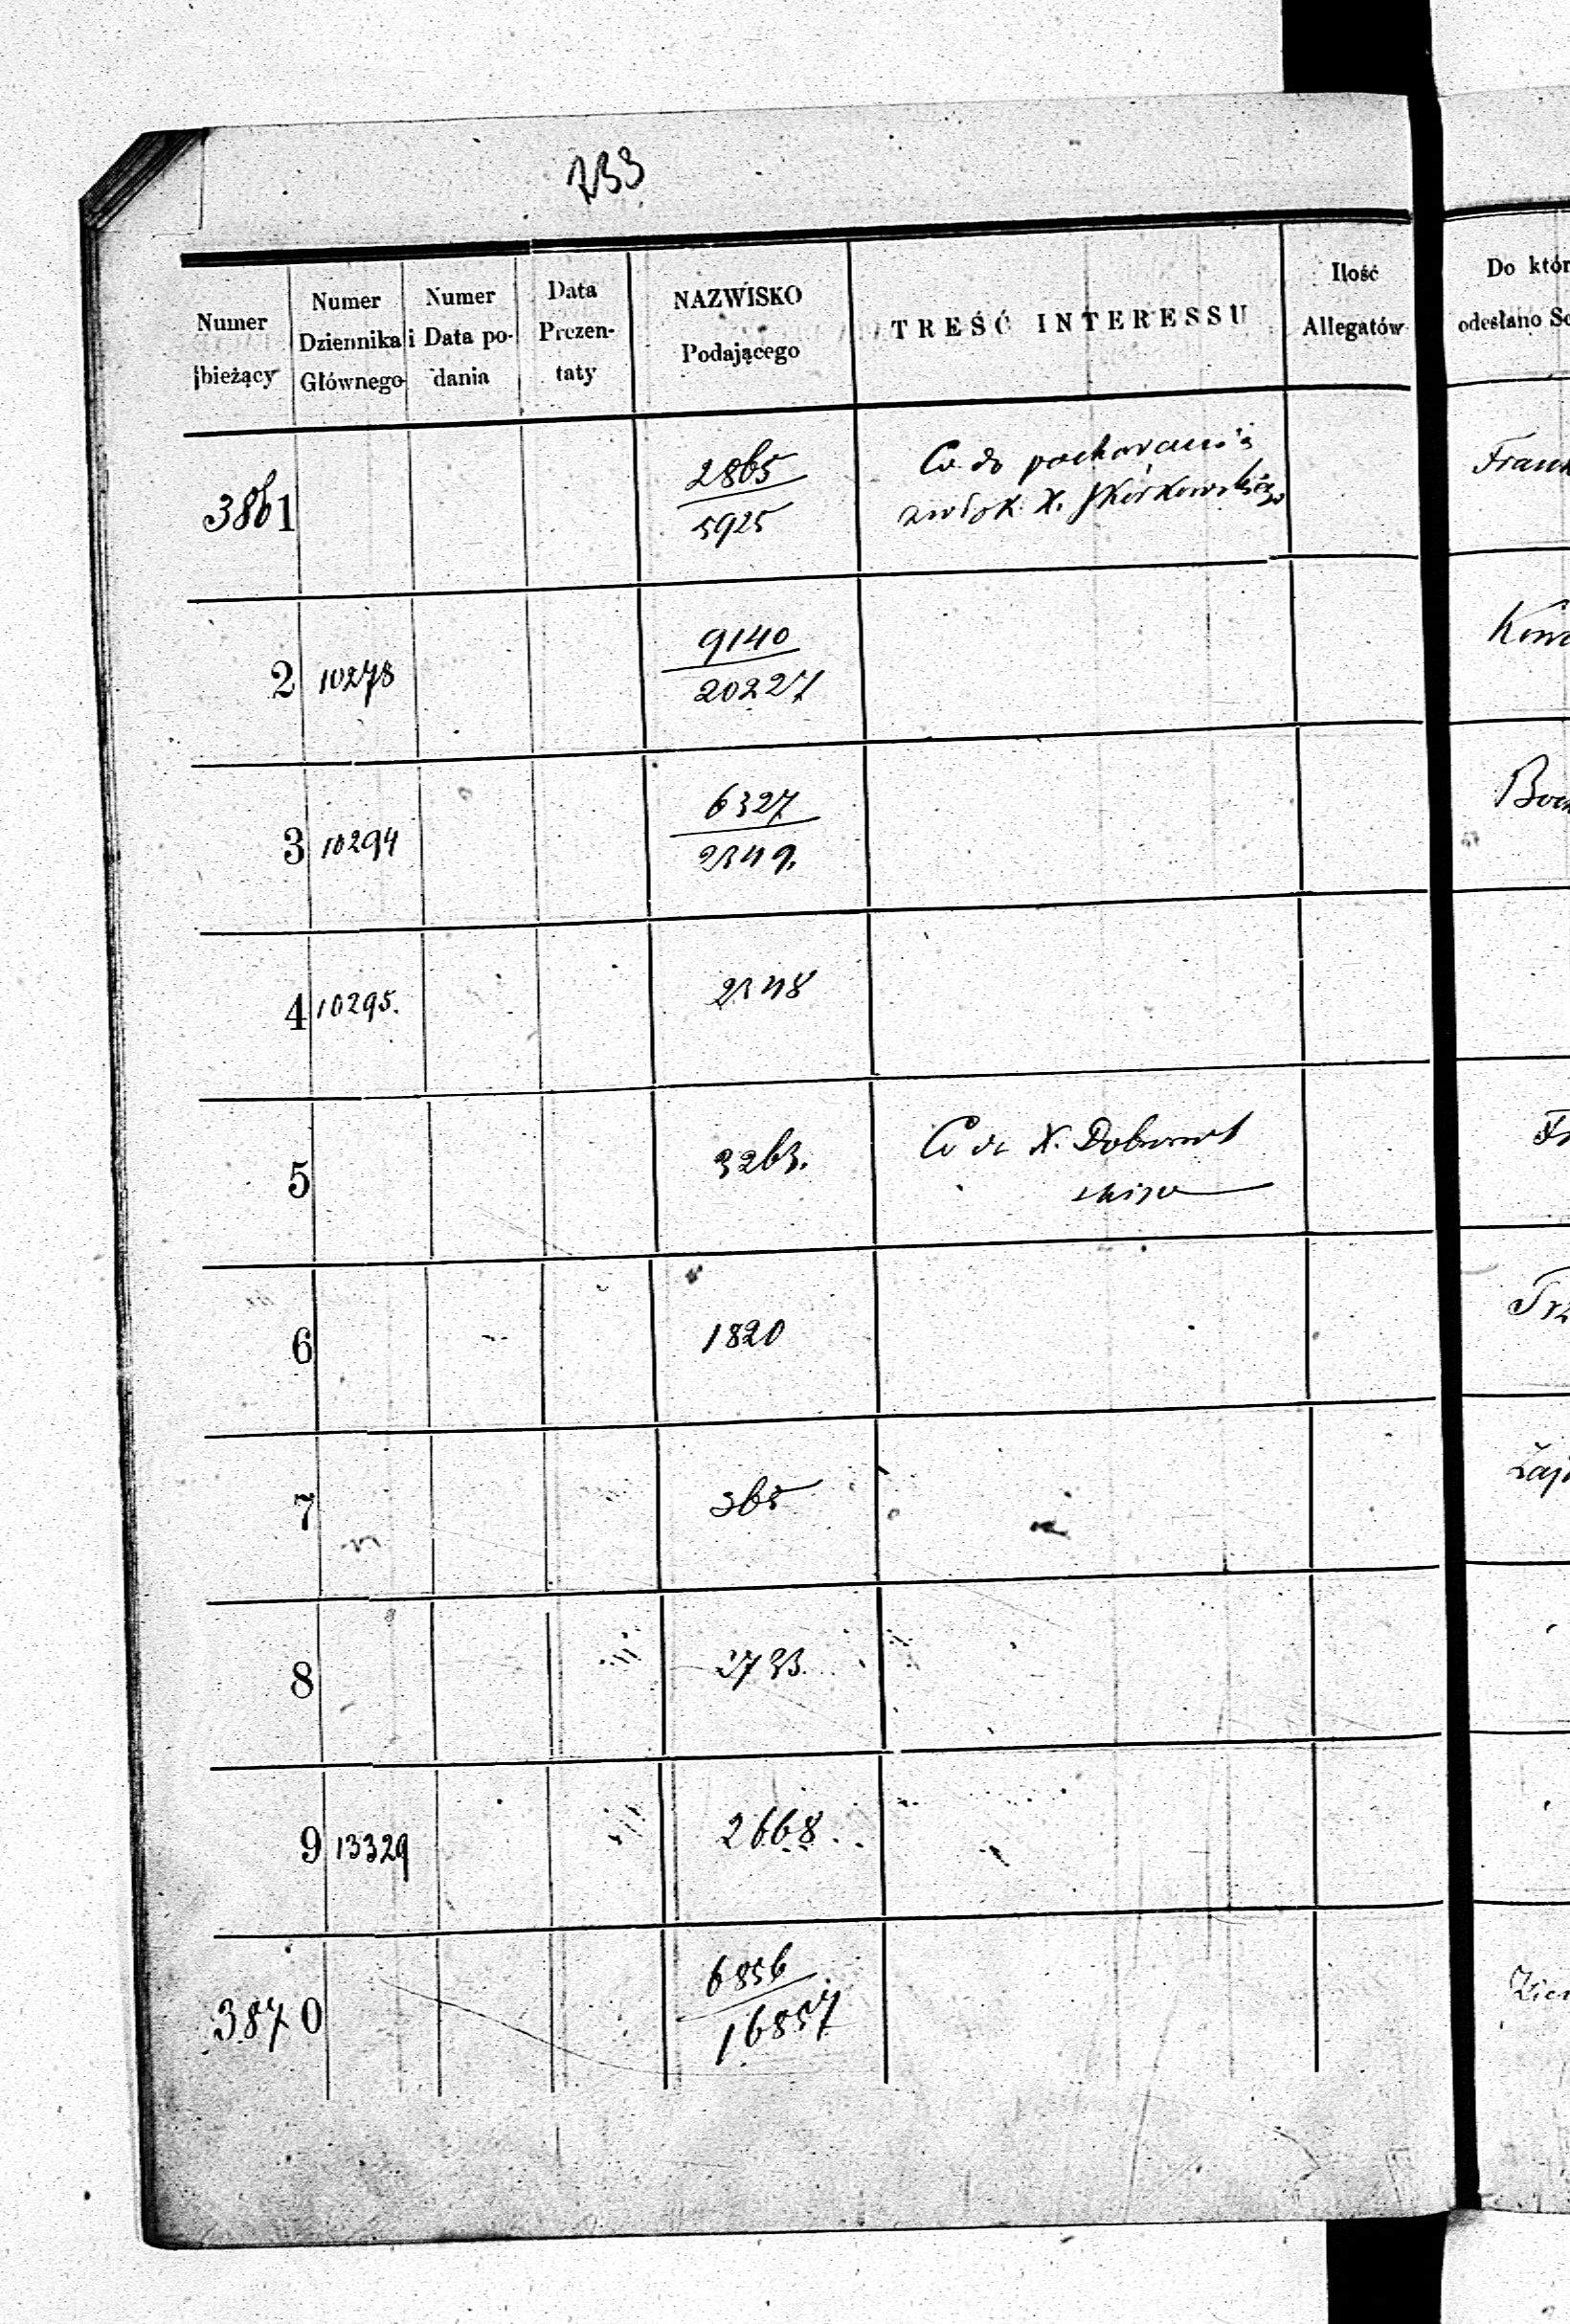 233
Numer bieżący
Numer Dziennika Głównego
Numer i Data podania
Data Prezentaty
NAZWISKO Podającego
TREŚĆ INTERESSU
Ilość Allegatów
Do któr
odesłano
3861
2865
5925
Co do pochowania
zwłok X. Skórkowskiego
Frank
2
10278
9140
20227
3
10294
6327
2349.
4
10295.
2348
5
3263.
Co do X. Dobrowol
skiego
6
1820
7
365
8
2733
9
13329
2668
3870
6856
16857